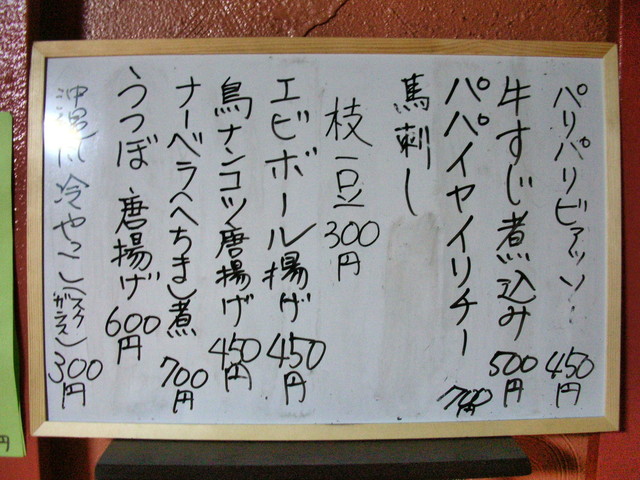 パリパリピアッソ… 450円
牛すじ煮込み 500円
パパイヤイリチー 700円
馬刺し
枝豆 300円
エビボール揚げ 450円
鳥ナンコツ唐揚げ 450円
ナーベラへちまし煮 700円
うつぼ唐揚げ 600円
沖縄風 冷やっこ(スクガラス) 300円
円